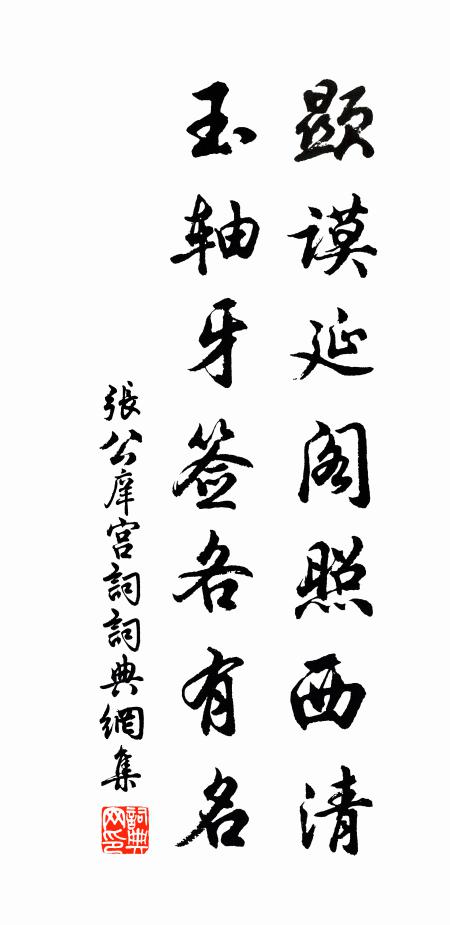 顯谟延阁照西清
玉軸牙签各有名
張公庠宫詞詞典網集
詞典网印